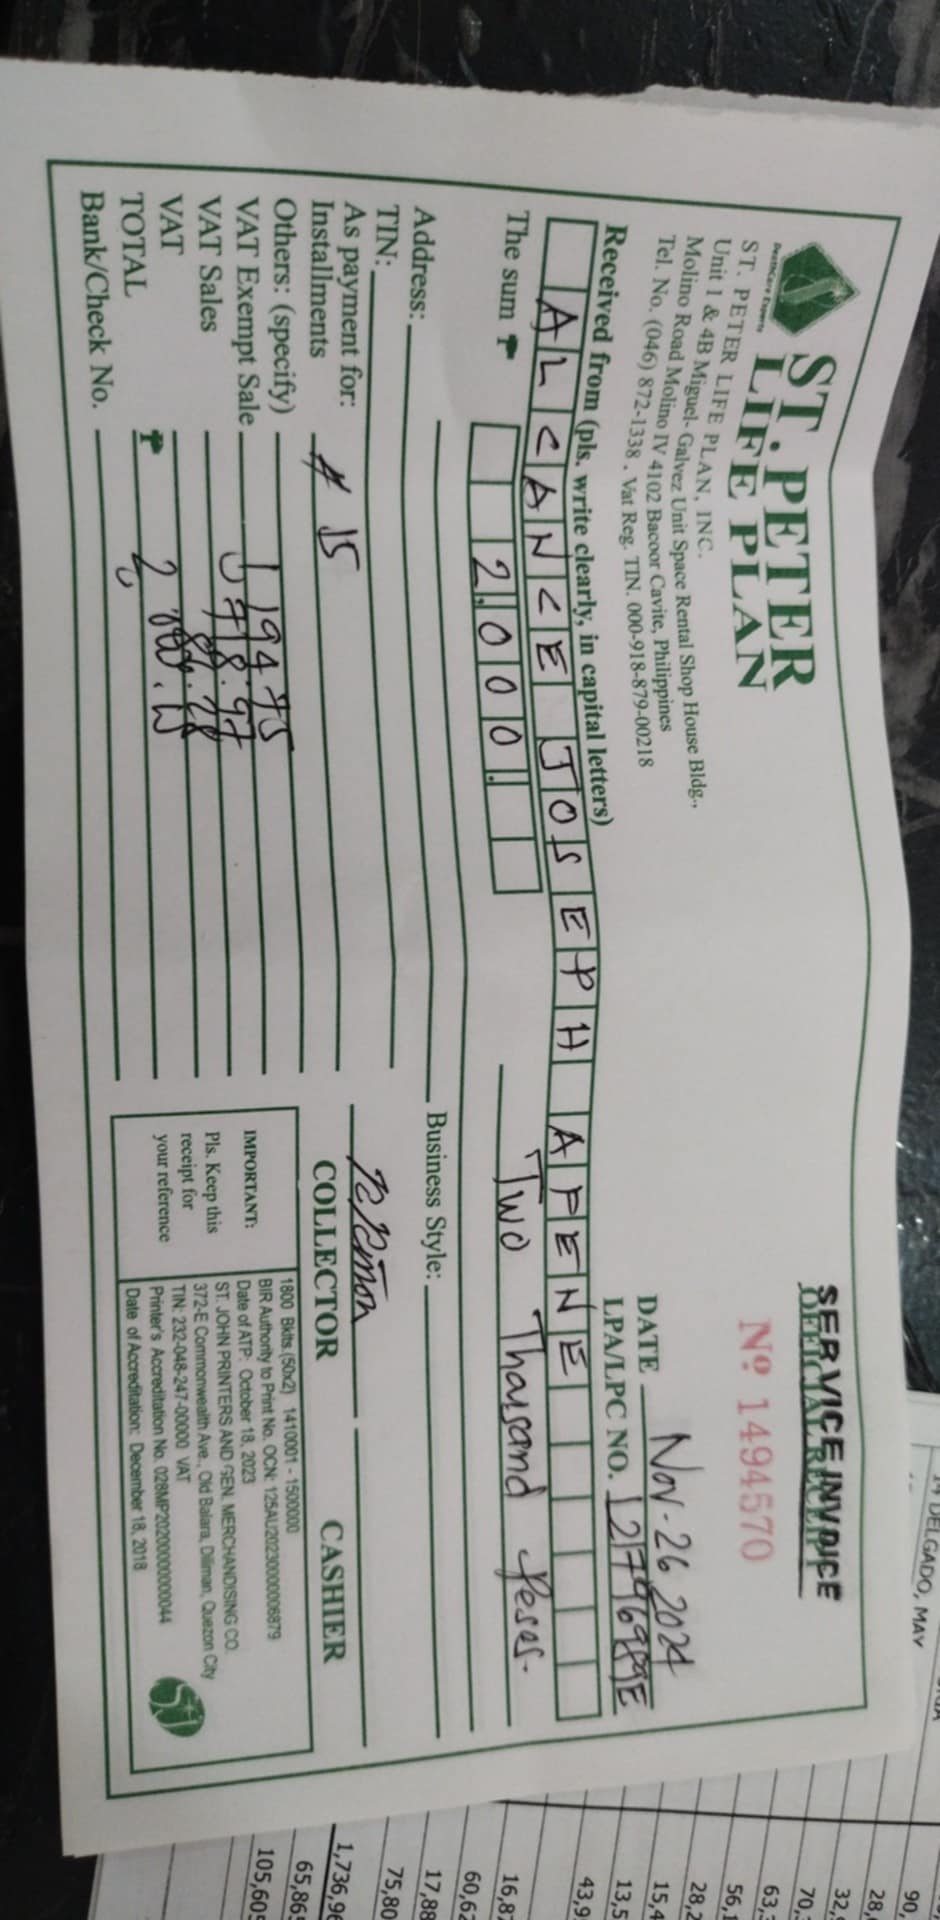 ST. PETER
LIFE PLAN
DeathCare Experts
SERVICE INVOICE
OFFICIAL RECEIPT
ST. PETER LIFE PLAN, INC.
Unit 1 & 4B Miguel- Galvez Unit Space Rental Shop House Bldg.,
Molino Road Molino IV 4102 Bacoor Cavite, Philippines
Tel. No. (046) 872-1338 . Vat Reg. TIN. 000-918-879-00218
Nº 1494570
DATE Nov-26 2024
LPA/LPC NO.
Received from (pls. write clearly, in capital letters)
ALCANCE JOSEPH APENE
The sum ₱ 2,000. Two Thousand Pesos-
Address:
Business Style:
TIN:
As payment for:
Installments # 15
Others: (specify)
VAT Exempt Sale 1194.75
VAT Sales 718.97
VAT 86.28
TOTAL ₱ 2,000.00
Bank/Check No.
COLLECTOR
CASHIER
IMPORTANT:
Pls. Keep this
receipt for
your reference
1800 Bklts.(50x2) 1410001 - 1500000
BIR Authority to Print No. OCN: 125AU20230000006879
Date of ATP: October 18, 2023
ST. JOHN PRINTERS AND GEN. MERCHANDISING CO.
372-E Commonwealth Ave., Old Balara, Diliman, Quezon City
TIN: 232-048-247-00000 VAT
Printer's Accreditation No. 028MP20200000000044
Date of Accreditation: December 18, 2018
SJ
DELGADO, MAY
90,
28,
32,
70,
63,
56,1
28,2
15,4
13,5
43,9
16,87
60,62
17,88
75,80
1,736,96
65,865
105,605